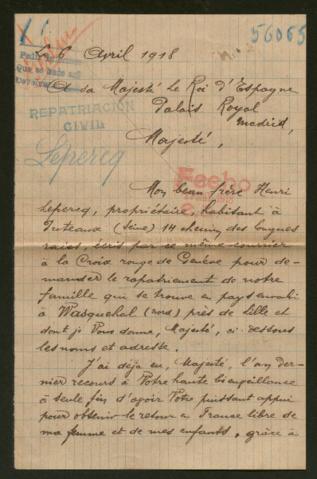 56065
Le 6 Avril 1918
A sa Majesté le Roi d'Espagne
Palais Royal
Madrid,
REPATRIACIÓN
CIVIL
Lepercq
Majesté,
Fecho
Mon beau frère Henri
Lepercq, propriétaire, habitant à
Puteaux (Seine) 14 chemin des
écrit par ce même courrier
à la Croix rouge de Genève pour de-
mander le rapatriement de notre
famille qui se trouve en pays envahi
à Wasquehal (Nord) près de Lille et
dont je Vous donne, Majesté, ci-dessous
les noms et adresse.
J'ai déjà eu, Majesté, l'an der-
nier recours à Votre haute bienveillance
à seule fin d'avoir Votre puissant appui
pour obtenir le retour en France libre de
ma femme et de mes enfants, grâce à